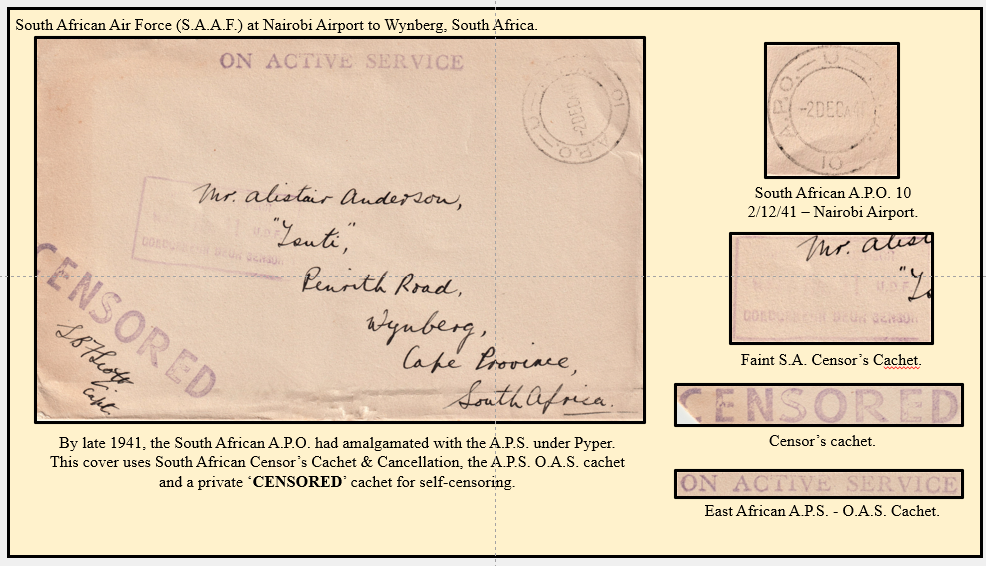 South African Air Force (S.A.A.F.) at Nairobi Airport to Wynberg, South Africa.
ON ACTIVE SERVICE
A.P.O. – U –
10
-2 DEC 41
Mr. Alistair Anderson,
Penrith Road,
Wynberg,
Cape Province,
South Africa.
U.D.F.
DEUR SENSOR
CENSORED
Capt.
By late 1941, the South African A.P.O. had amalgamated with the A.P.S. under Pyper.
This cover uses South African Censor's Cachet & Cancellation, the A.P.S. O.A.S. cachet
and a private 'CENSORED' cachet for self-censoring.
A.P.O. – U –
-2 DEC 41
10
South African A.P.O. 10
2/12/41 – Nairobi Airport.
Mr. Alist
U.D.F.
DEUR SENSOR
Faint S.A. Censor's Cachet.
CENSORED
Censor's cachet.
ON ACTIVE SERVICE
East African A.P.S. - O.A.S. Cachet.